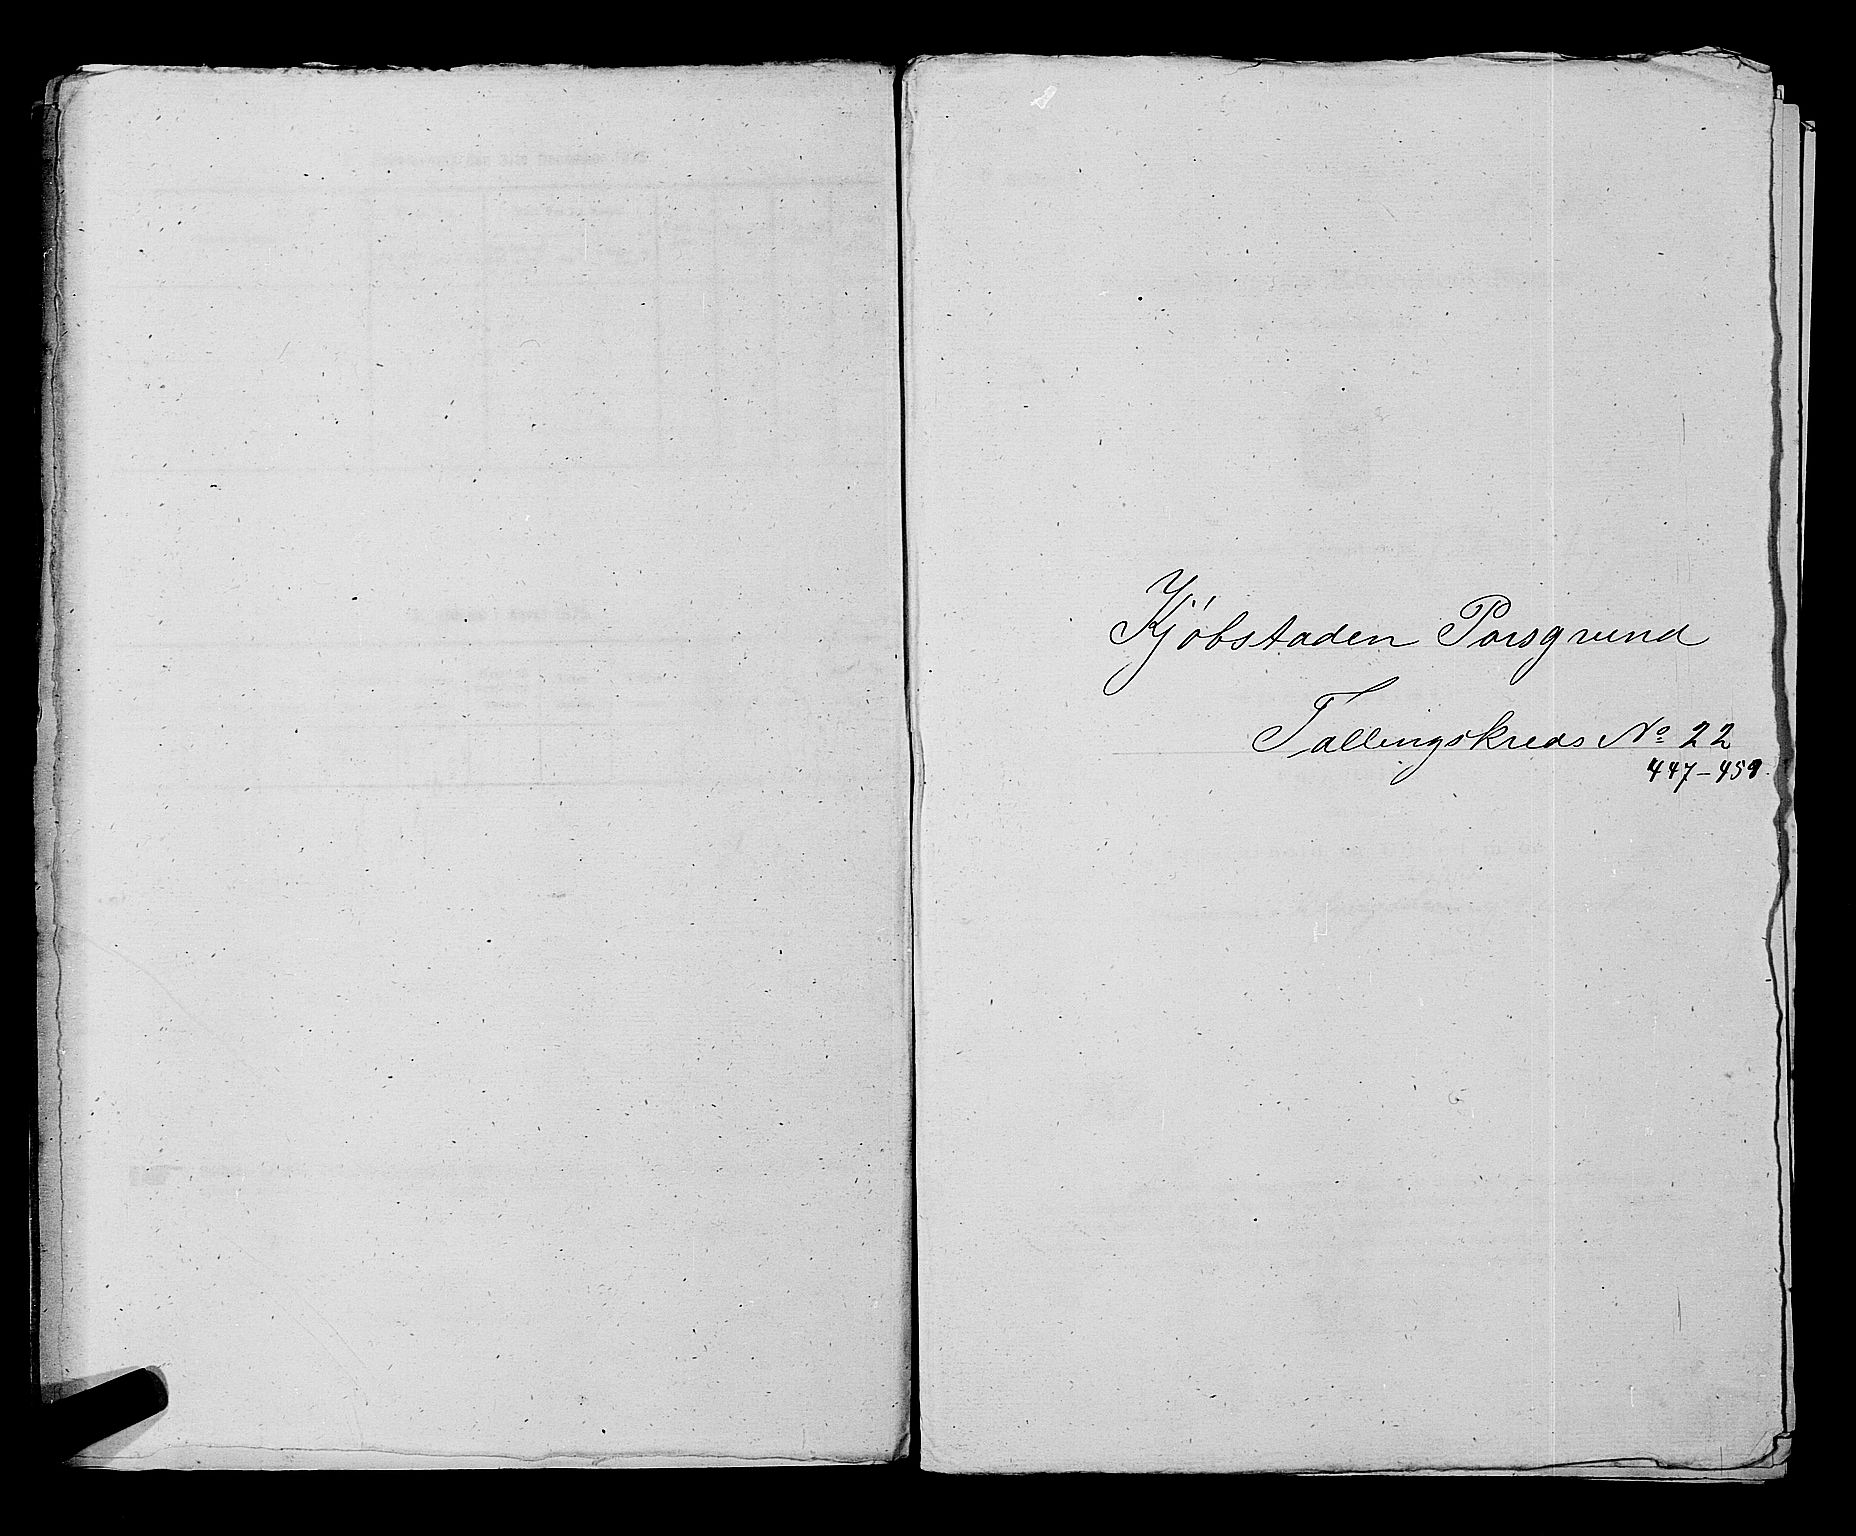 Kjøbstaden Porsgrund
Tællingskreds No 22
447-459